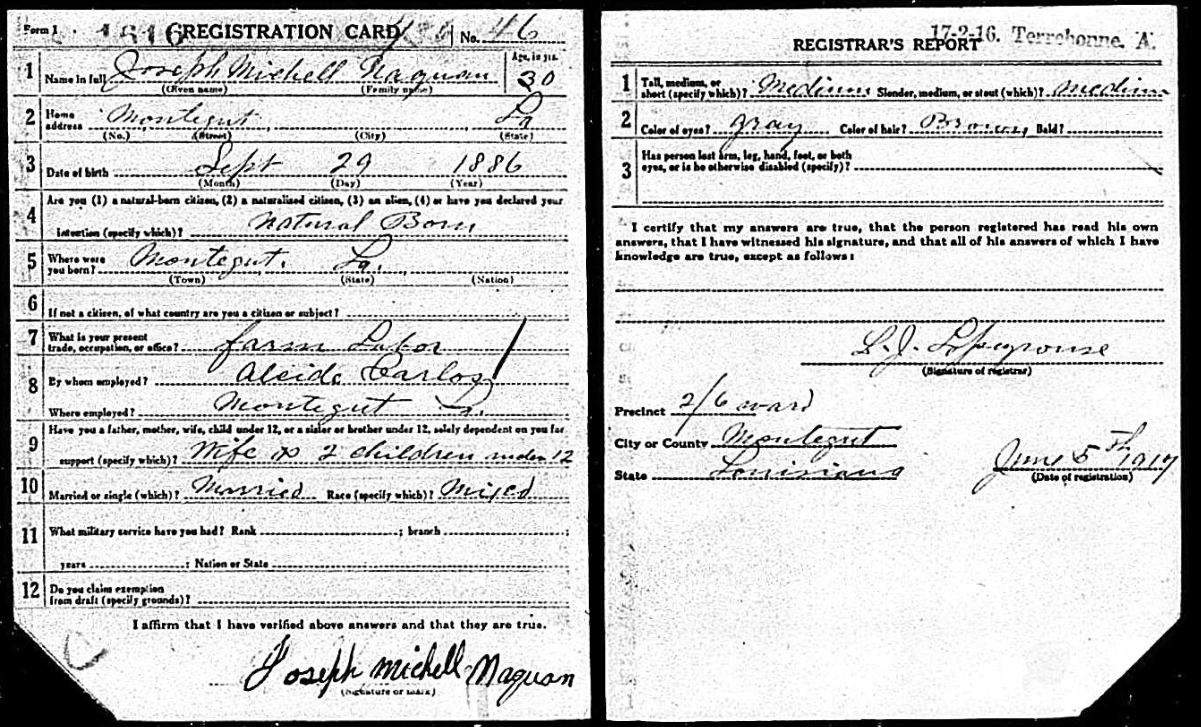 Form 1 1816 REGISTRATION CARD No. 46
1 Name in full Joseph Michell Naquan Age, in yrs. 30
(Given name) (Family name)
2 Home address Montegut La
(No.) (Street) (City) (State)
3 Date of birth Sept 29 1886
(Month) (Day) (Year)
Are you (1) a natural-born citizen, (2) a naturalized citizen, (3) an alien, (4) or have you declared your
4 intention (specify which)? Natural Born
5 Where were you born? Montegut. La.
(Town) (State) (Nation)
6 If not a citizen, of what country are you a citizen or subject?
7 What is your present
trade, occupation, or office? farm Labor
8 By whom employed? Alcide Carlos
Where employed? Montegut La.
9 Have you a father, mother, wife, child under 12, or a sister or brother under 12, solely dependent on you for
support (specify which)? Wife 2 children under 12
10 Married or single (which)? Married Race (specify which)? Mixed
11 What military service have you had? Rank ; branch ;
years ; Nation or State
12 Do you claim exemption
from draft (specify grounds)?
I affirm that I have verified above answers and that they are true.
Joseph Michell Naquan
(Signature or mark)
17-2-16. Terrebonne. A.
REGISTRAR'S REPORT
1 Tall, medium, or
short (specify which)? Medium Slender, medium, or stout (which)? medium
2 Color of eyes? gray Color of hair? Brown Bald?
3 Has person lost arm, leg, hand, foot, or both
eyes, or is he otherwise disabled (specify)?
I certify that my answers are true, that the person registered has read his own
answers, that I have witnessed his signature, and that all of his answers of which I have
knowledge are true, except as follows:
(Signature of registrar)
Precinct 2/6 ward
City or County Montegut
State Louisiana
June 5th 1917
(Date of registration)